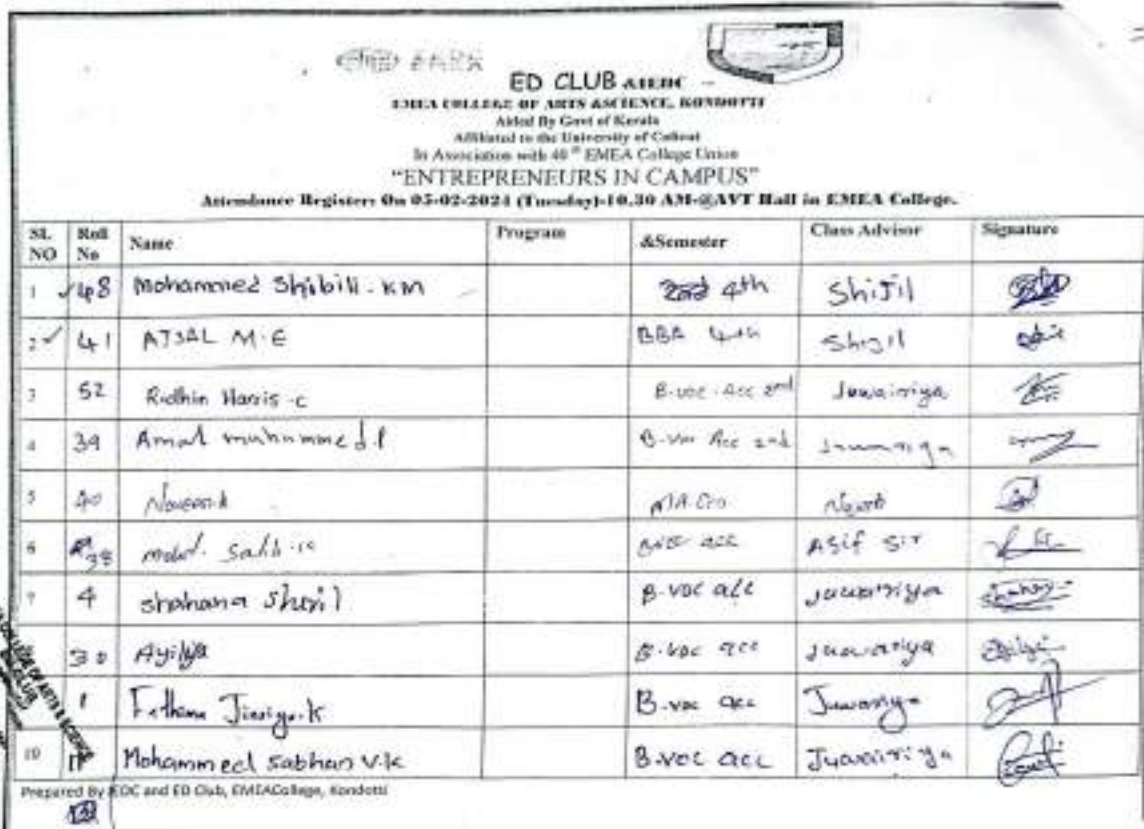 ED CLUB AIEDC
EMEA COLLEGE OF ARTS &SCIENCE, KONDOTTI
Aided By Govt of Kerala
Affiliated to the University of Calicut
In Association with 40th EMEA College Union
"ENTREPRENEURS IN CAMPUS"
Attendance Register: On 05-02-2024 (Tuesday)-10.30 AM-@AVT Hall in EMEA College.
SL NO Roll No Name Program &Semester Class Advisor Signature
1 48 Mohammed Shibili. KM 4th Shijil
2 41 M.E BBA 4th Shijil
3 52 Ridhin Harris.c B.voc.Acc 2nd Juwairiya
4 39 Amal muhammed.P B.Voc Acc 2nd
5 40
6 38 Salih acc Asif Sir
7 4 shahana Sheril B.voc acc Juwairiya
30 Ayilya B.voc acc Juwariya
1 Fathima K B.voc acc Juwariya
10 Mohammed Sabhan V.K B.voc acc Juwairiya
Prepared By IEDC and ED Club, EMEACollege, Kondotti